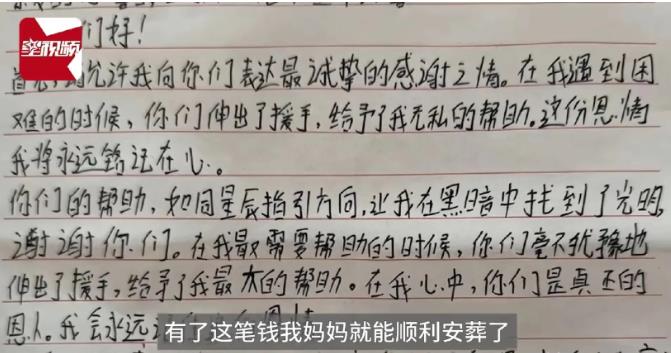 们好！
星视频
首先，请允许我向你们表达最诚挚的感谢之情。在我遇到困
难的时候，你们伸出了援手，给予了我无私的帮助。这份恩情
我将永远铭记在心。
你们的帮助，如同星辰指引方向，让我在黑暗中找到了光明
谢谢你们。在我最需要帮助的时候，你们毫不犹豫地
伸出了援手，给予了我最大的帮助。在我心中，你们是真正的
恩人。我会永远
有了这笔钱我妈妈就能顺利安葬了